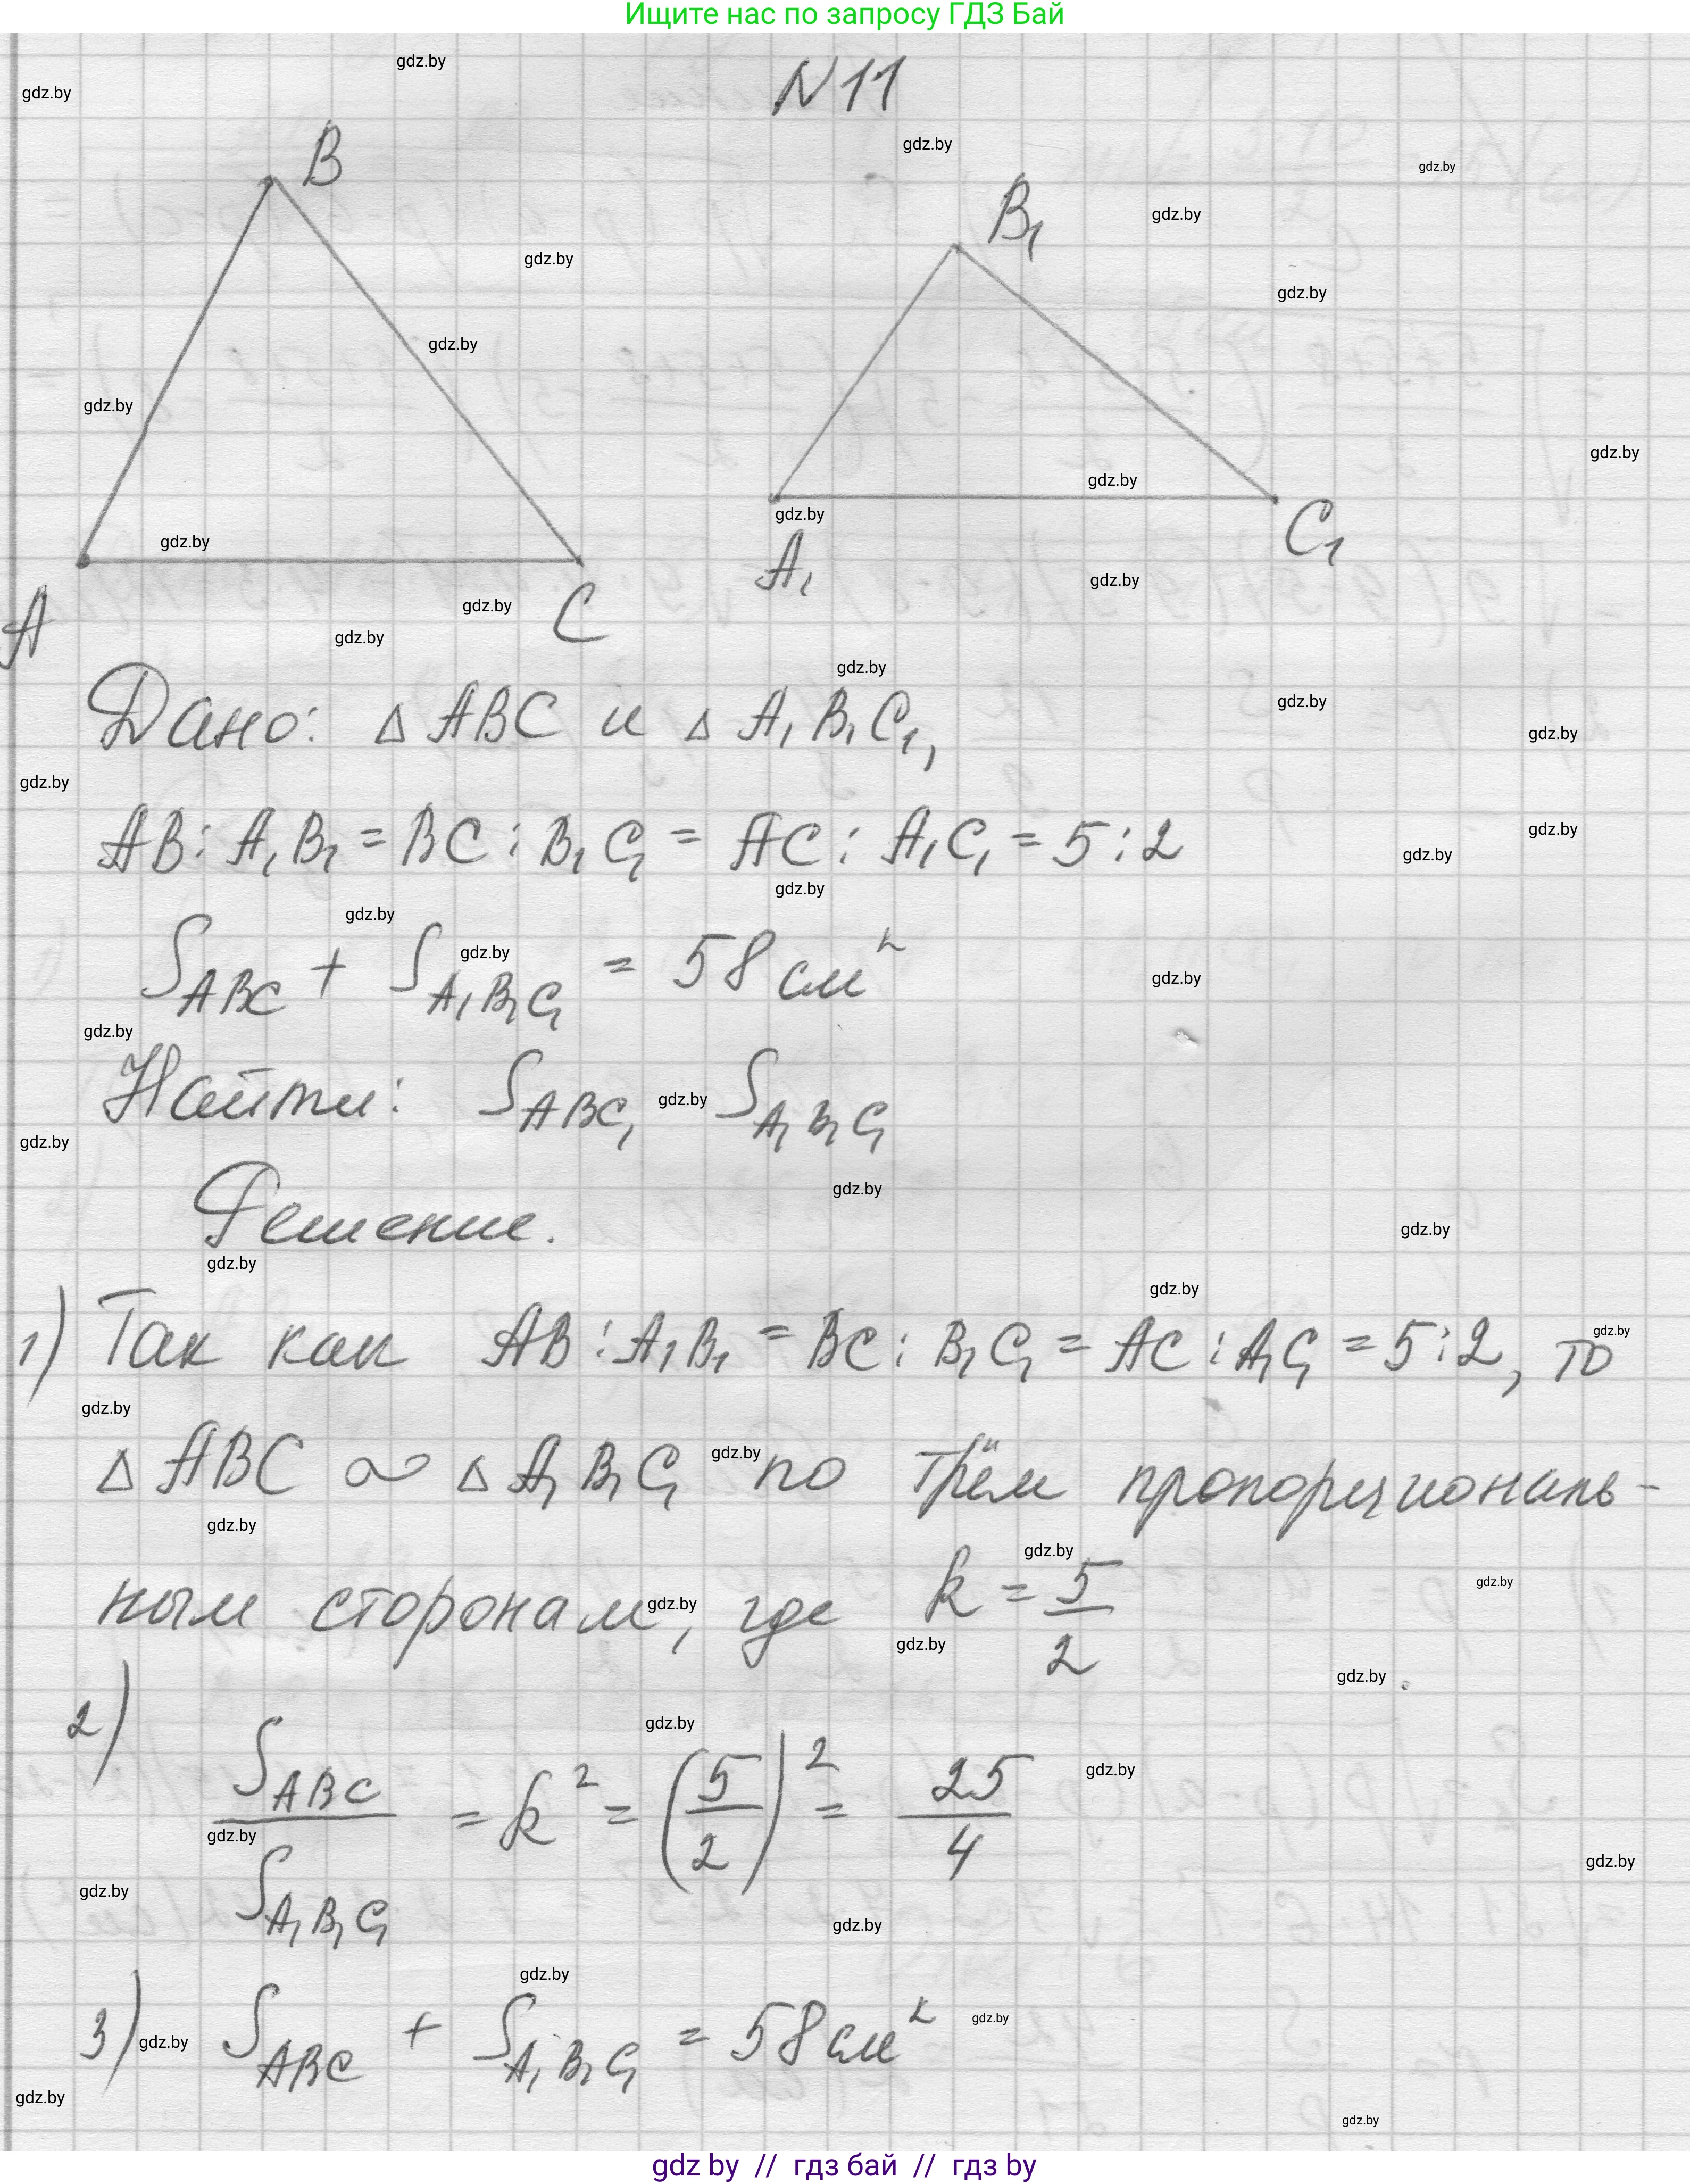 Ищите нас по запросу ГДЗ Бай
N 11
B
B₁
A
C
A₁
C₁
Дано: △ ABC и △ A₁B₁C₁,
AB : A₁B₁ = BC : B₁C₁ = AC : A₁C₁ = 5 : 2
S_ABC + S_A₁B₁C₁ = 58 см²
Найти: S_ABC, S_A₁B₁C₁
Решение.
1) Так как AB : A₁B₁ = BC : B₁C₁ = AC : A₁C₁ = 5 : 2, то
△ ABC ∾ △ A₁B₁C₁ по трём пропорциональ-
ным сторонам, где k = 5/2
2) S_ABC/S_A₁B₁C₁ = k² = (5/2)² = 25/4
3) S_ABC + S_A₁B₁C₁ = 58 см²
gdz.by
gdz by // гдз бай // гдз by